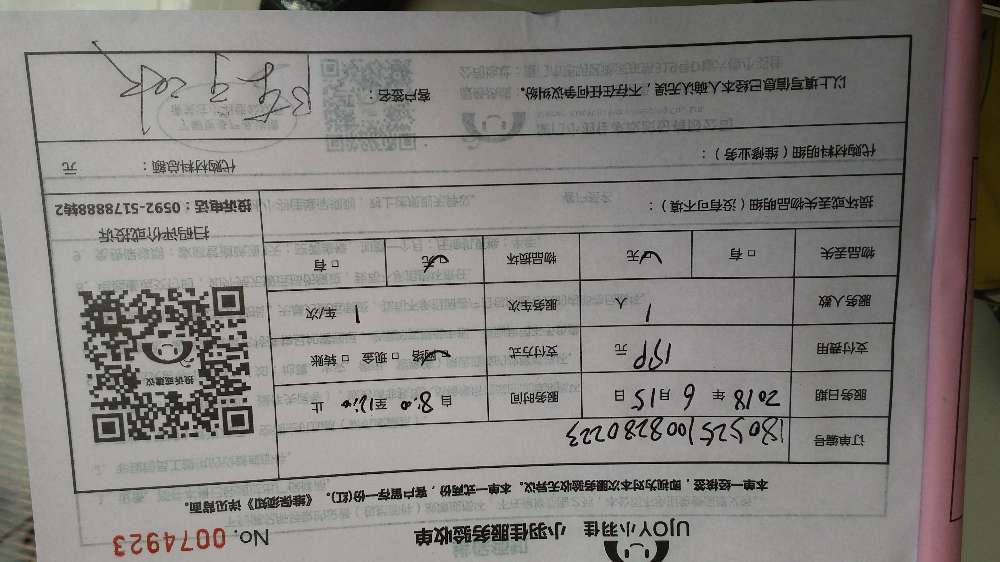 UJOY小羽佳 小羽佳服务验收单 No. 0074923
本单一经核签，即视为对本次服务验收无异议。本单一式两份，客户留存一份(红)。《维保须知》详见背面。
订单编号 1805251008280223
服务日期 2018 年 6 月 15 日 服务时间 自 8:00 至 12:00 止
支付费用 190 元 支付方式 网络 □ 现金 □ 转账
服务人数 1 人 服务车次 1 车/次
物品丢失 □ 有 无 物品损坏 无 □ 有
损坏或丢失物品明细（没有可不填）：
投诉或建议
扫码评价或投诉
投诉电话：0592-5178888转2
代购材料明细（维修业务）： 代购材料总额： 元
以上填写信息已经本人确认无误，不存在任何争议纠纷。 客户签名：